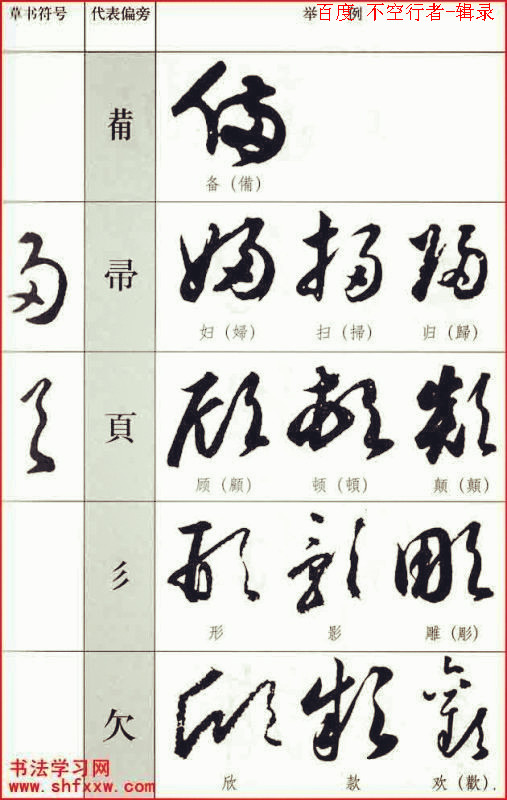 草书符号 代表偏旁 举 例
百度 不空行者-辑录
備
备（備）
帚
婦 掃 歸
妇（婦） 扫（掃） 归（歸）
頁
顧 頓 顛
顾（顧） 顿（頓） 颠（顛）
彡
形 影 彫
形 影 雕（彫）
欠
欣 款 歡
欣 款 欢（歡）.
书法学习网
www.shfxxw.com